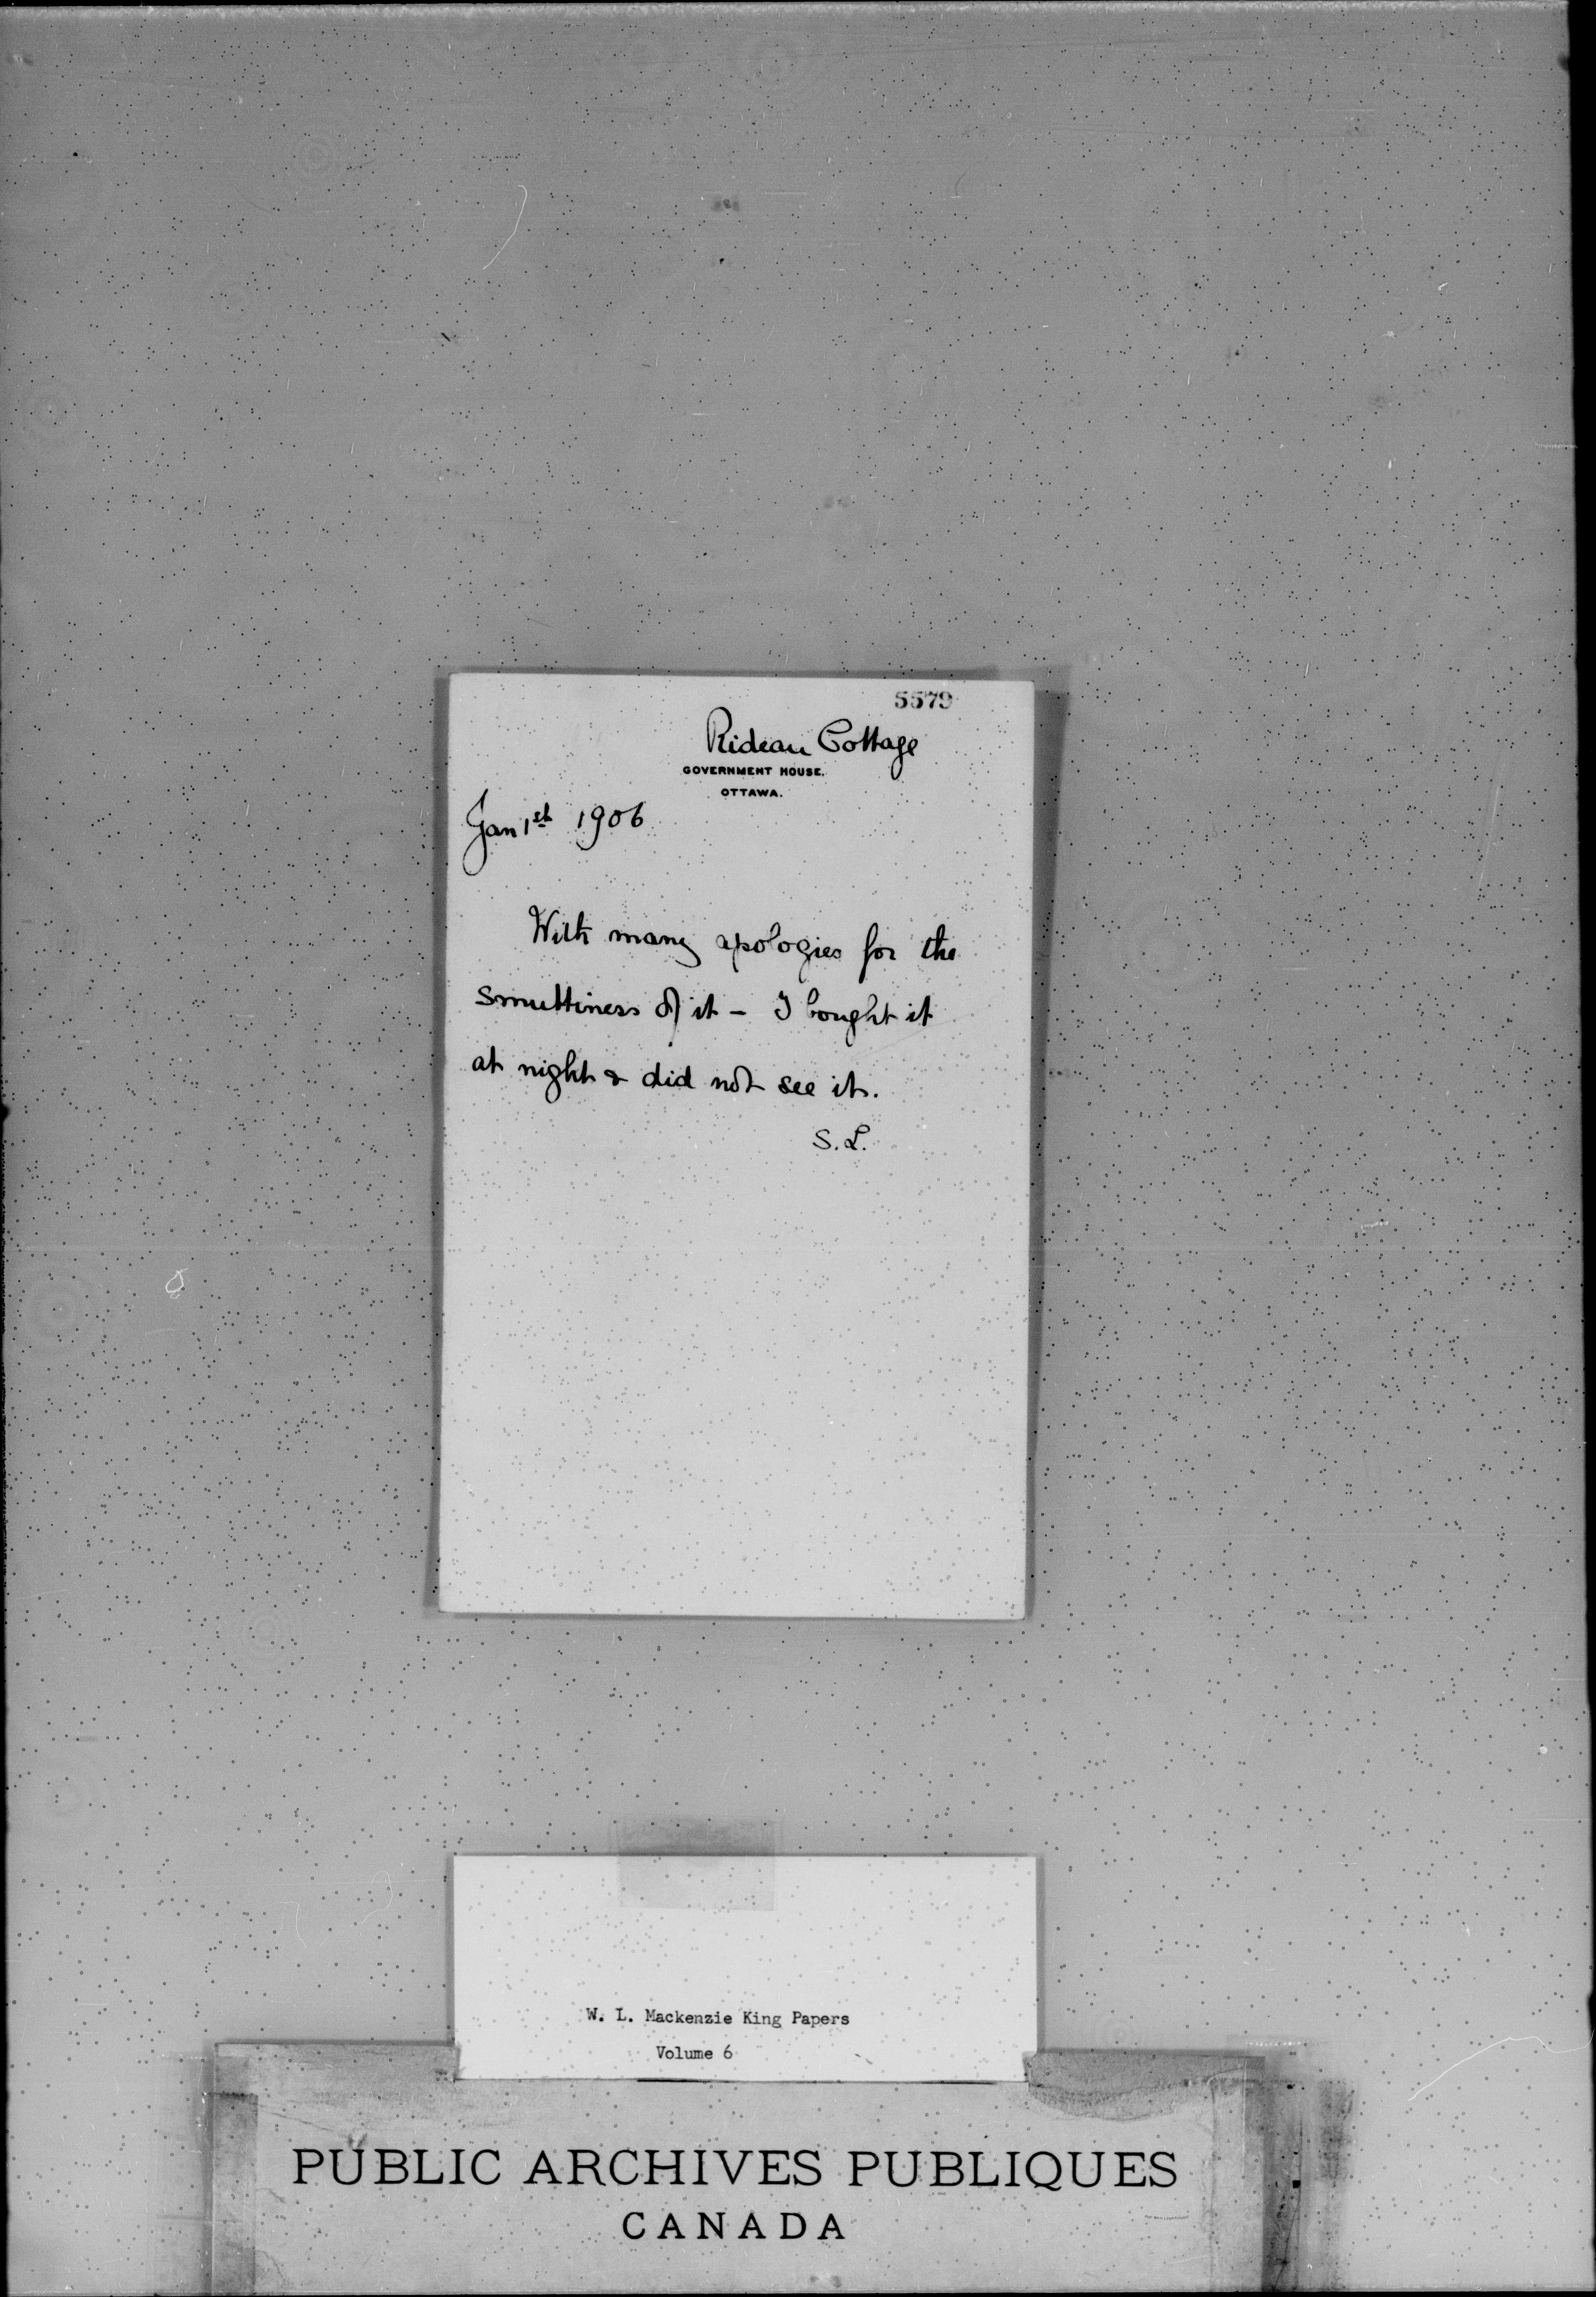 5579
Rideau Cottage
GOVERNMENT HOUSE.
OTTAWA.
Jan 1st 1906
With many apologies for the
smuttiness of it - I bought it
at night & did not see it.
S. L.
W. L. Mackenzie King Papers
Volume 6
PUBLIC ARCHIVES PUBLIQUES
CANADA